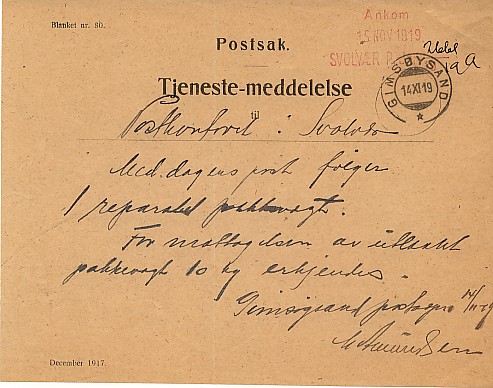 Blanket nr. 80.
Ankom
15 NOV 1919
SVOLVÆR
Postsak.
GIMSØYSAND
14 XI 19
Tjeneste-meddelelse
til
Postkontoret i Svolvær
Med dagens post følger
1 reparatet pakkevegt.
For mottagelsen av utlaant
pakkevegt 10 kg erkjendes.
Gimsøysand 14/11-19
December 1917.